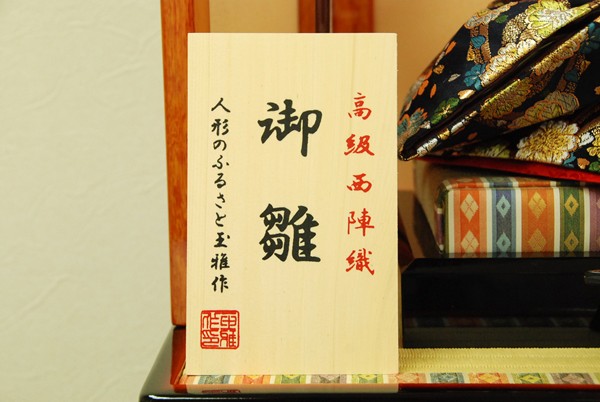 高級西陣織
御雛
人形のふるさと玉雅作